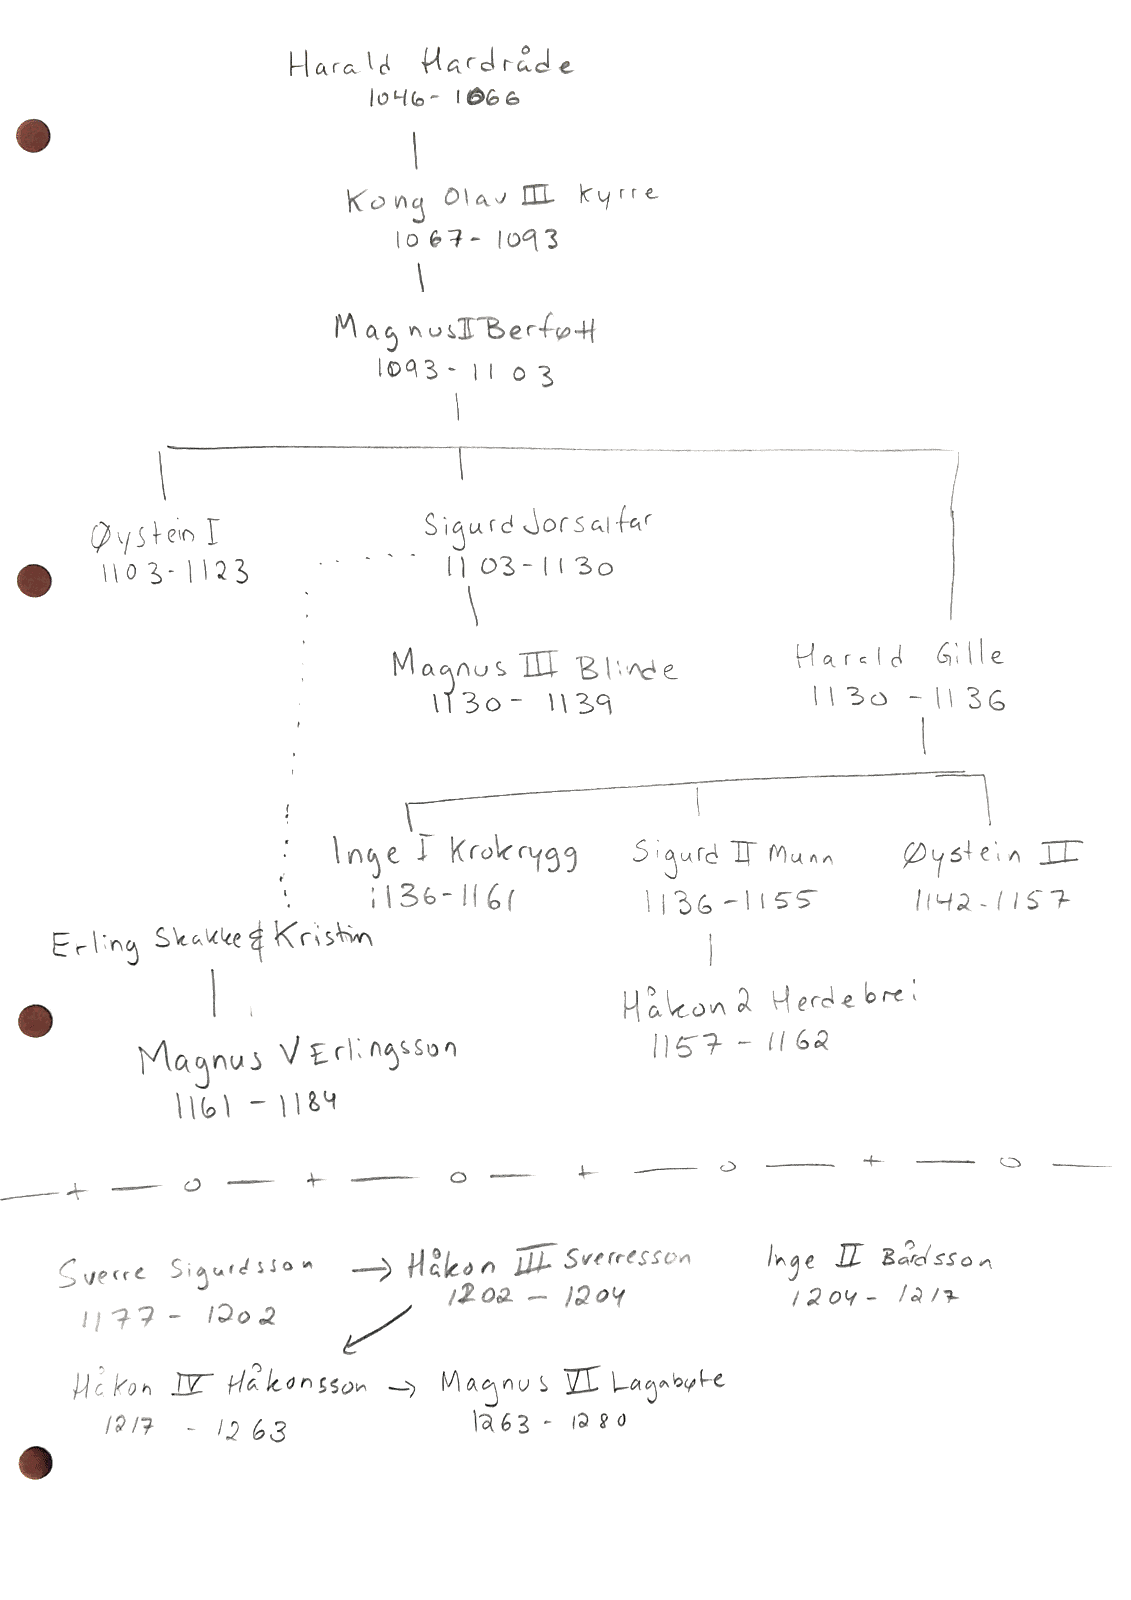 Harald Hardråde
1046-1066
Kong Olav III Kyrre
1067-1093
Magnus II Berføtt
1093-1103
Øystein I
1103-1123
Sigurd Jorsalfar
1103-1130
Magnus III Blinde
1130-1139
Harald Gille
1130-1136
Inge I Krokrygg
1136-1161
Sigurd II Munn
1136-1155
Øystein II
1142-1157
Erling Skakke & Kristin
Håkon 2 Herdebrei
1157-1162
Magnus V Erlingsson
1161-1184
Sverre Sigurdsson → Håkon III Sverresson
1177-1202
1202-1204
Inge II Bårdsson
1204-1217
Håkon IV Håkonsson → Magnus VI Lagabøte
1217-1263
1263-1280